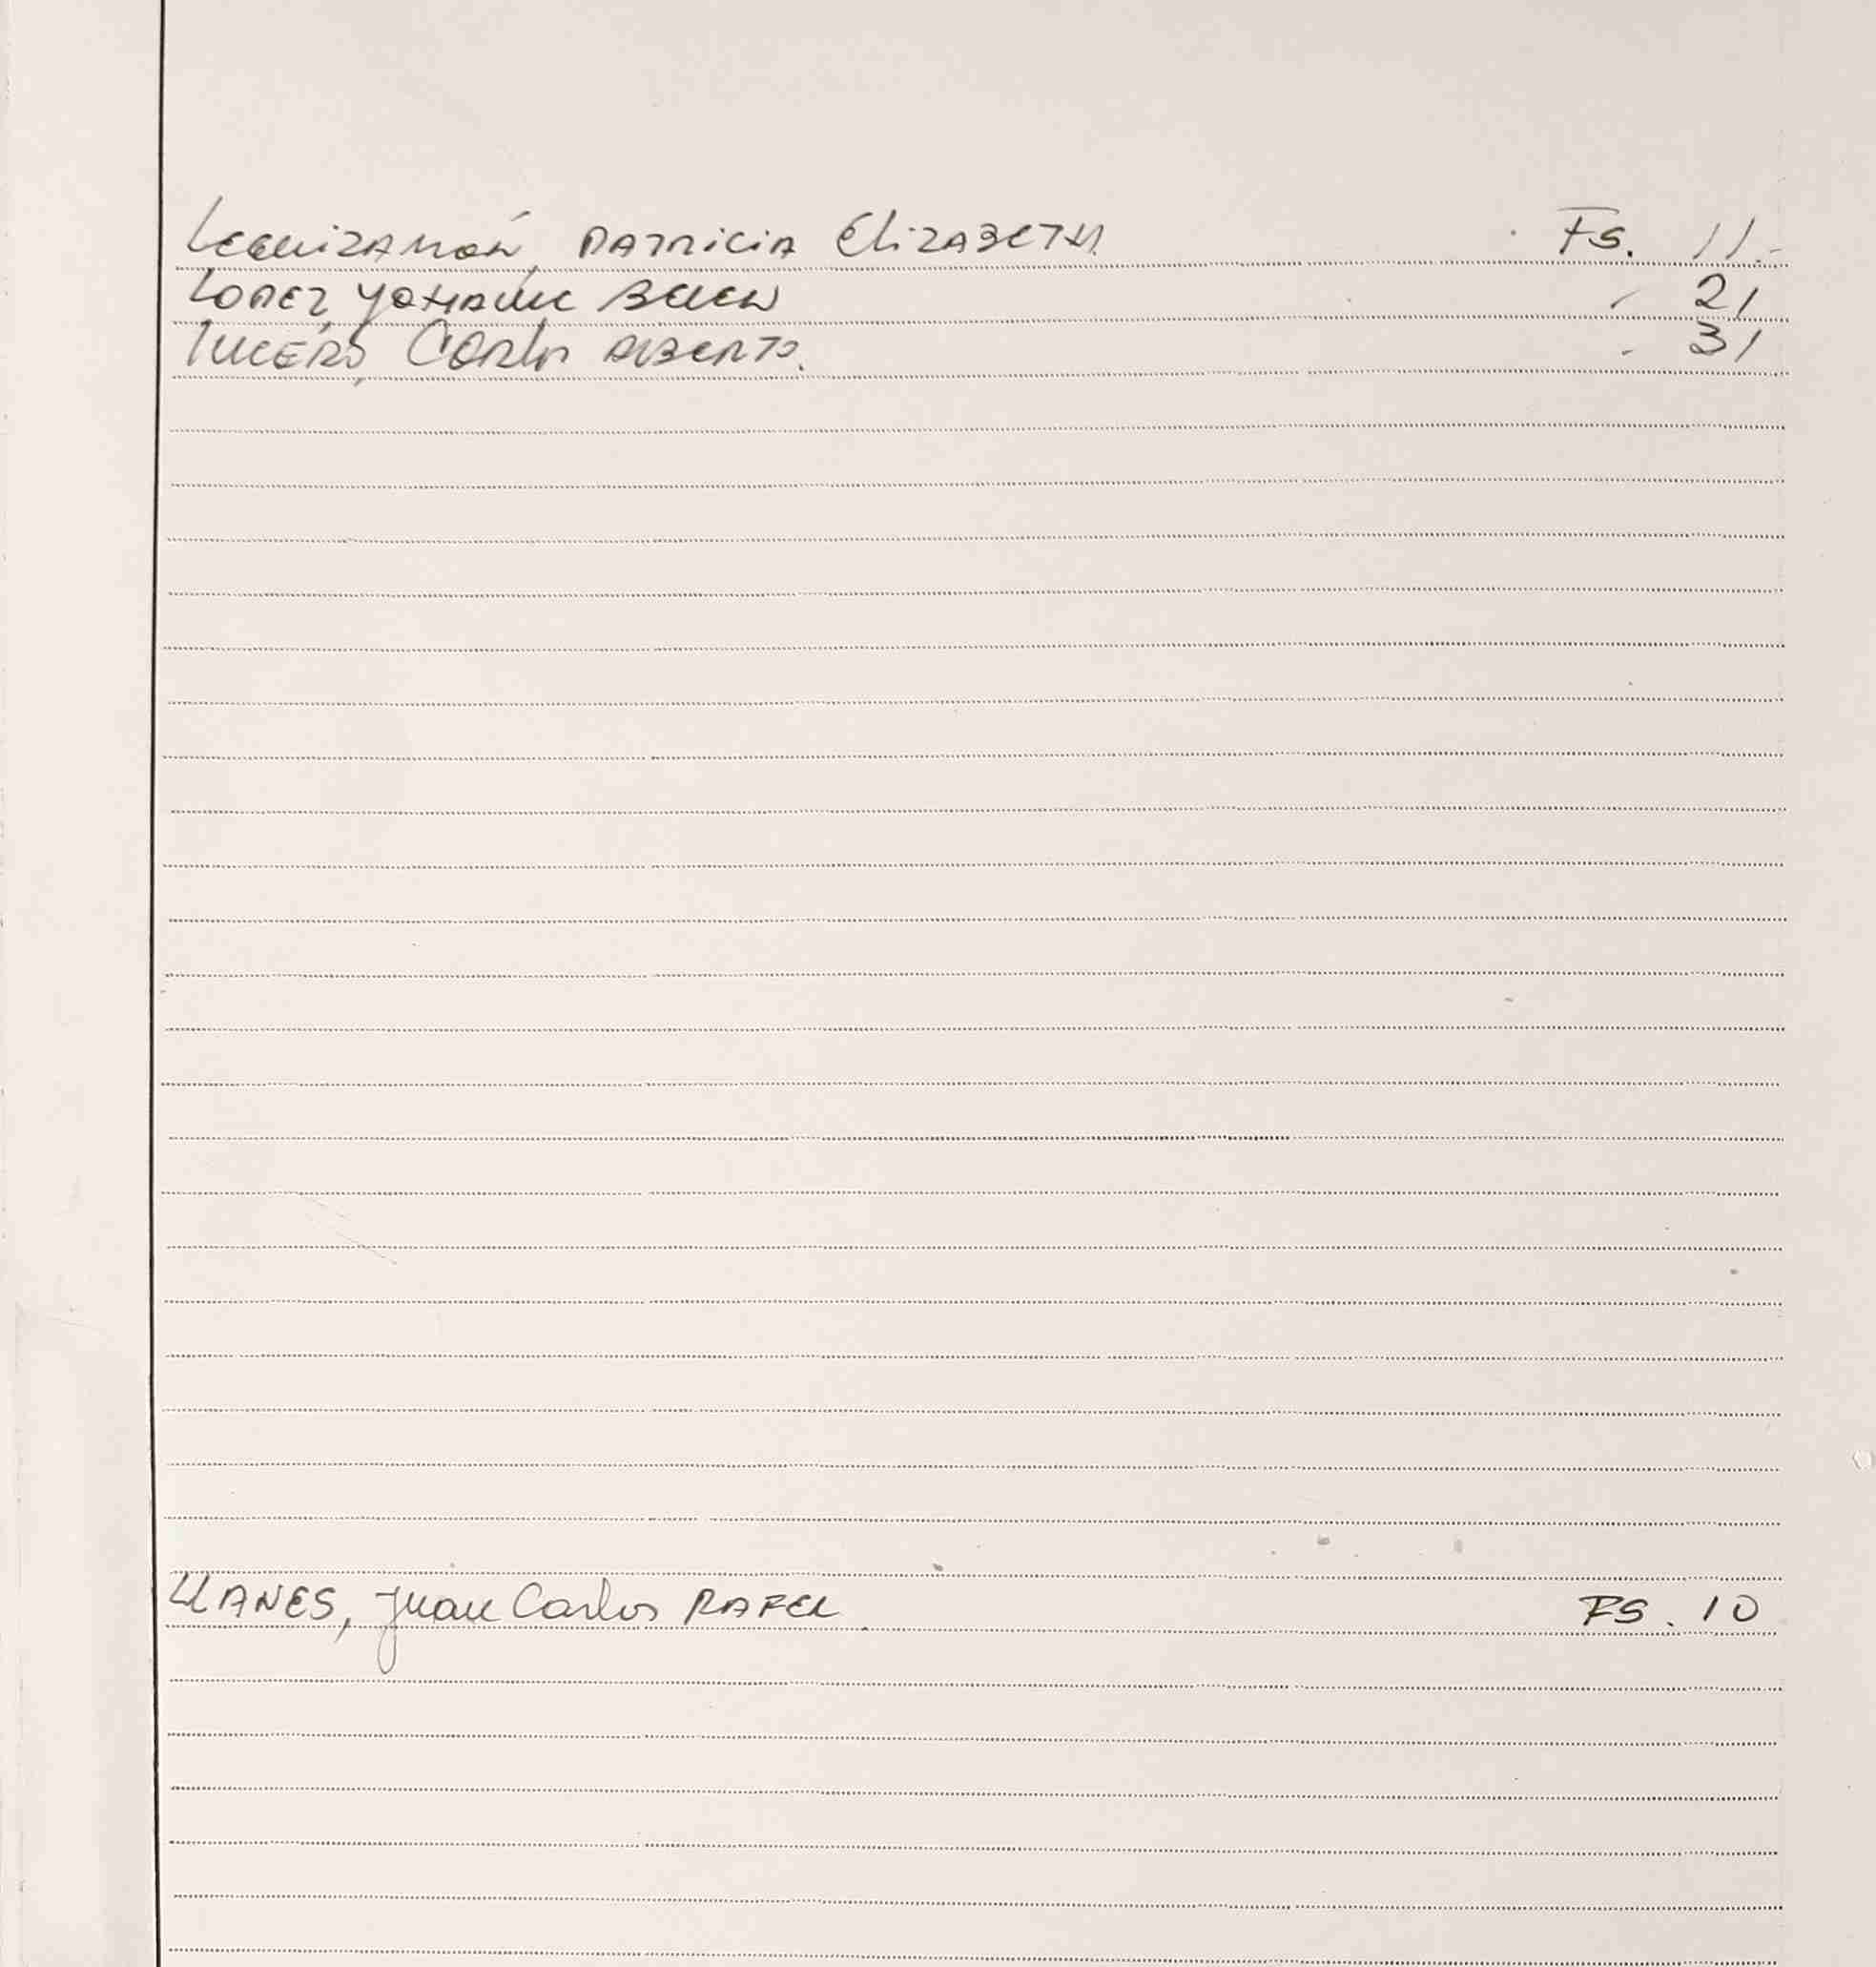 Leguizamón, Patricia Elizabeth. Fs. 11.-
Lopez, Yohanne Belen " 21
Lucero, Carlos Alberto. " 31
LLANES, Juan Carlos RAFEL Fs. 10